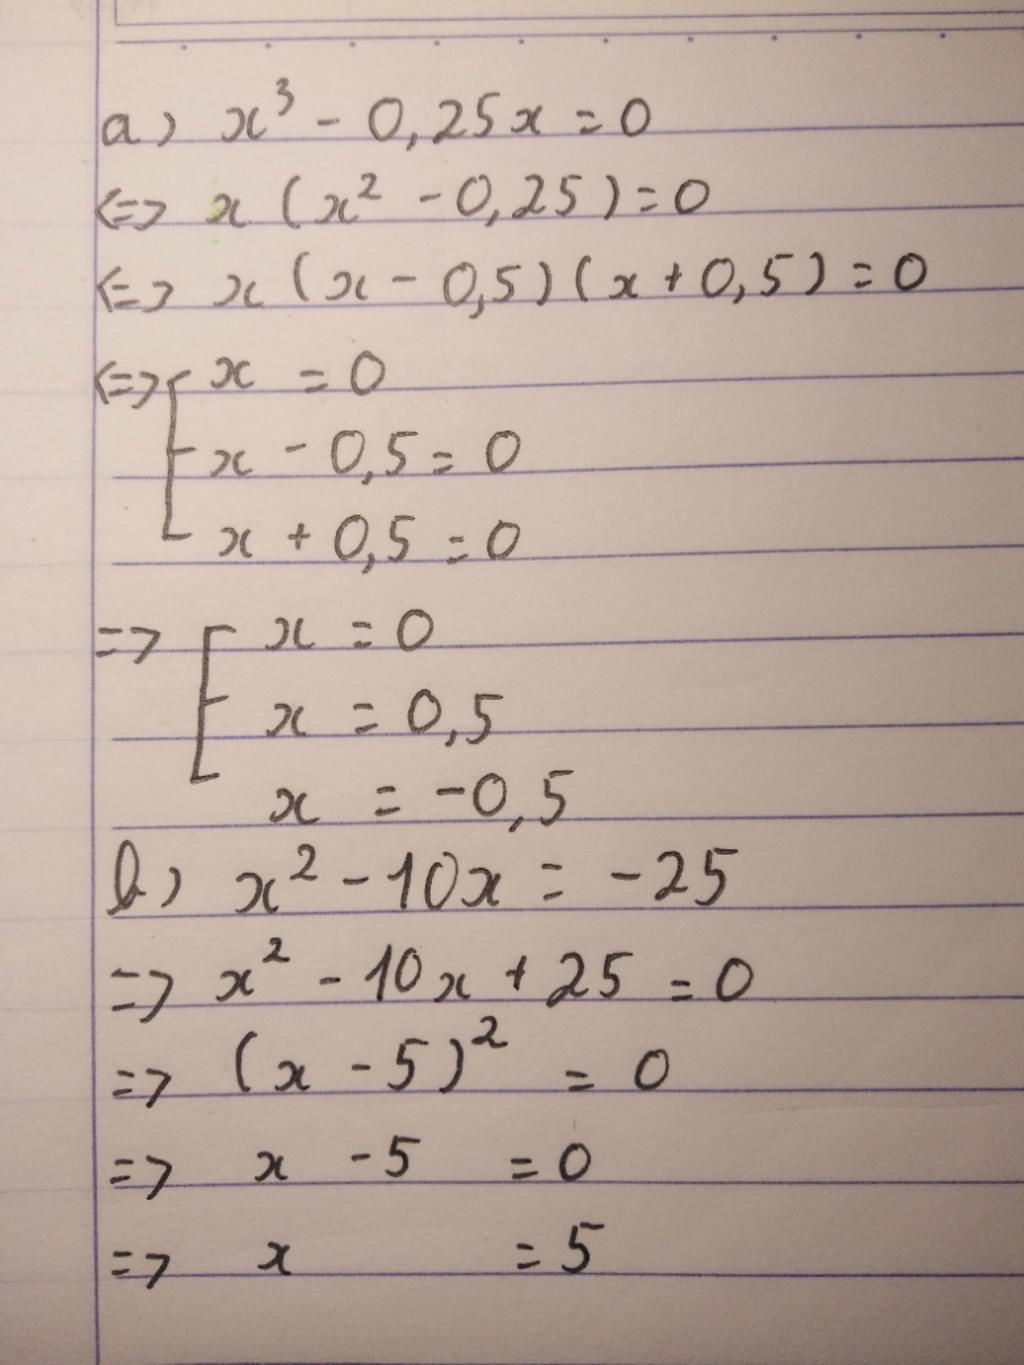 a) x³ - 0,25x = 0
<=> x (x² - 0,25) = 0
<=> x (x - 0,5) (x + 0,5) = 0
<=> [ x = 0
x - 0,5 = 0
x + 0,5 = 0
=> [ x = 0
x = 0,5
x = -0,5
b) x² - 10x = -25
=> x² - 10x + 25 = 0
=> (x - 5)² = 0
=> x - 5 = 0
=> x = 5